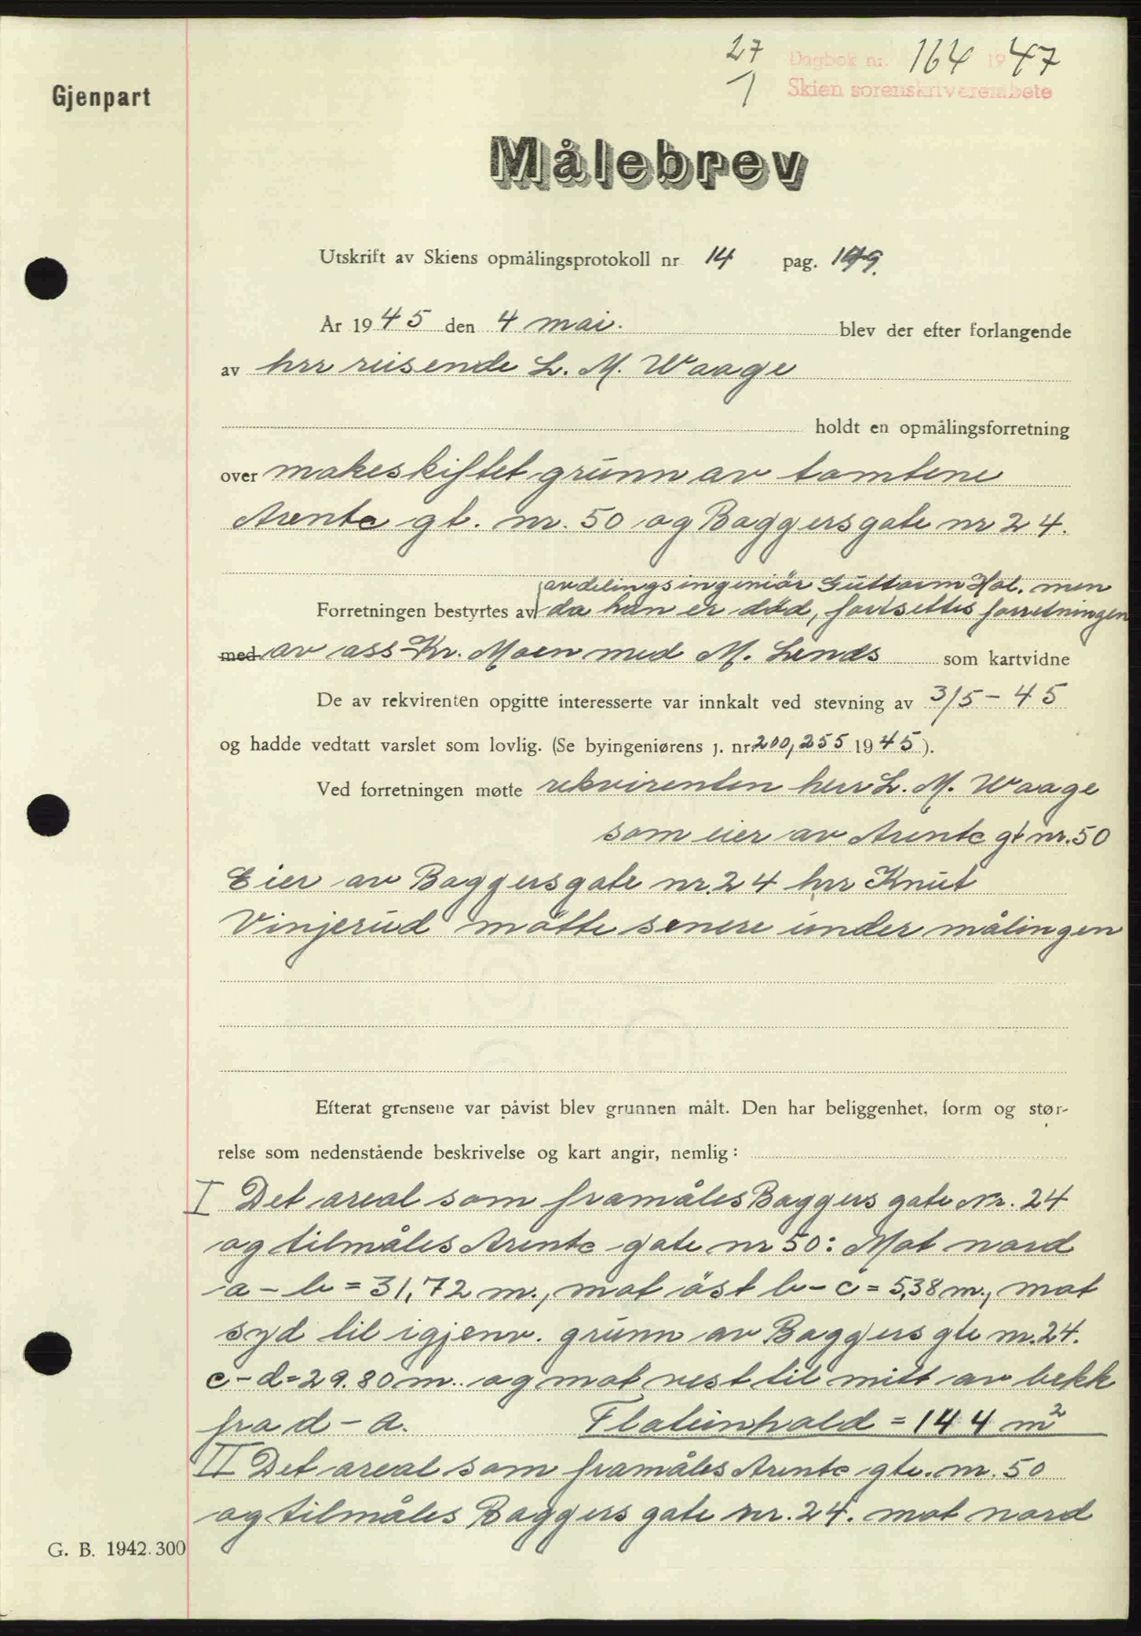 27/1 Dagbok nr. 164 1947
Skien sorenskriverembete
Gjenpart
Målebrev
Utskrift av Skiens opmålingsprotokoll nr 14 pag. 149.
År 1945 den 4 mai. blev der efter forlangende
av hrr reisende L. M. Waage
holdt en opmålingsforretning
over makeskiftet grunn av tomtene
Arents gt. nr. 50 og Baggersgate nr 24.
avdelingsingeniör Guttorm Hol. men
Forretningen bestyrtes av da han er död, fortsettes forretningen
med av ass Kr. Moen med M. Lends som kartvidne
De av rekvirenten opgitte interesserte var innkalt ved stevning av 3/5 - 45
og hadde vedtatt varslet som lovlig. (Se byingeniørens j. nr 200, 255 1945).
Ved forretningen møtte rekvirenten herr L. M. Waage
som eier av Arents gt nr. 50
Eier av Baggersgate nr. 24 hrr Knut
Vinjerud mötte senere under målingen
Efterat grensene var påvist blev grunnen målt. Den har beliggenhet, form og stør-
relse som nedenstående beskrivelse og kart angir, nemlig:
I Det areal som framåles Baggers gate Nr. 24
og tilmåles Arents gate nr 50: Mot nord
a - b = 31,72 m., mot öst b - c = 5,38 m., mot
syd til igjenv. grunn av Baggers gte nr. 24.
c - d = 29.80 m. og mot vest til mitt av bekk
fra d - a. Flateinhold = 144 m²
II Det areal som framåles Arents gte. nr. 50
og tilmåles Baggers gate nr. 24. mot nord
G. B. 1942. 300